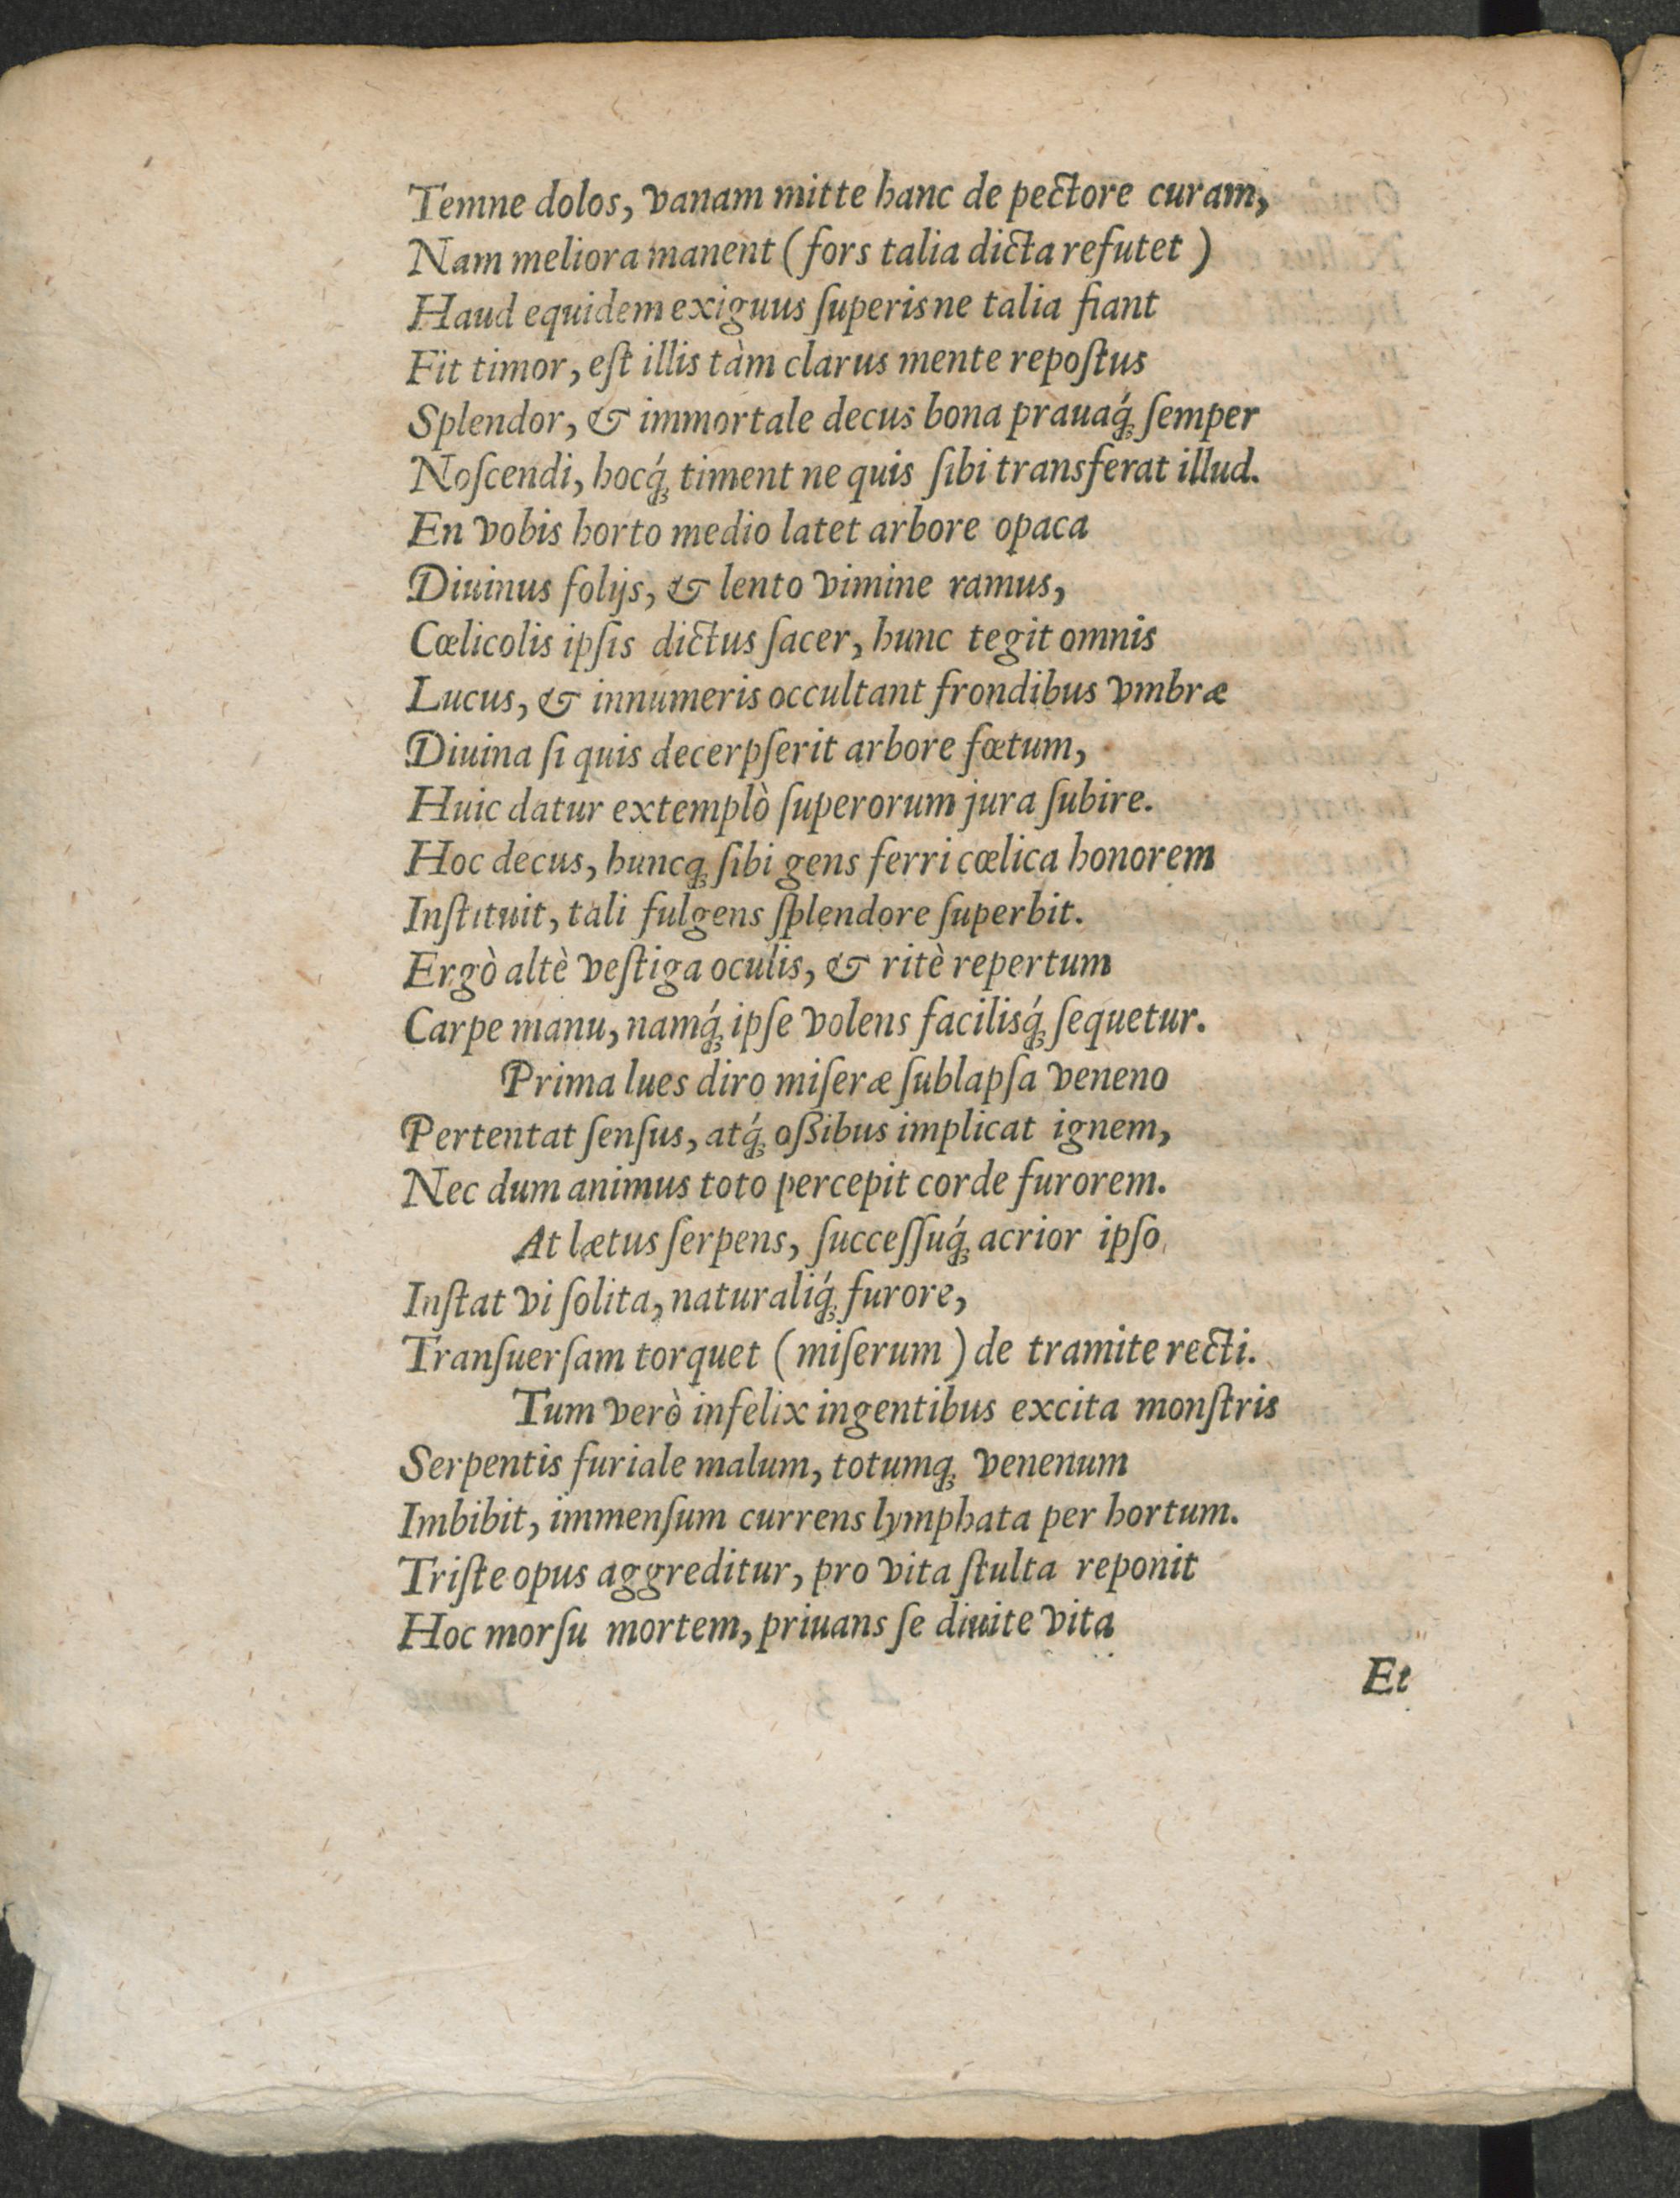 Temne dolos, vanam mitte hanc de pectore curam,
Nam meliora manent (fors talia dicta refutet)
Haud equidem exiguus ſuperisne talia fiant
Fit timor, eſt illis tàm clarus mente repoſtus
Splendor, & immortale decus bona prauaq́; ſemper
Noſcendi, hocq́; timent ne quis ſibi transferat illud.
En vobis horto medio latet arbore opaca
Diuinus folijs, & lento vimine ramus,
Cœlicolis ipſis dictus ſacer, hunc tegit omnis
Lucus, & innumeris occultant frondibus vmbræ
Diuina ſi quis decerpſerit arbore fœtum,
Huic datur extemplò ſuperorum jura ſubire.
Hoc decus, huncq; ſibi gens ferri cœlica honorem
Inſtituit, tali fulgens ſplendore ſuperbit.
Ergò altè veſtiga oculis, & ritè repertum
Carpe manu, namq́; ipſe volens facilisq́; ſequetur.
Prima lues diro miſeræ ſublapſa veneno
Pertentat ſenſus, atq́; oſsibus implicat ignem,
Nec dum animus toto percepit corde furorem.
At lætus ſerpens, ſucceſſuq́; acrior ipſo
Inſtat vi ſolita, naturaliq́; furore,
Tranſuerſam torquet (miſerum) de tramite recti.
Tum verò infelix ingentibus excita monſtris
Serpentis furiale malum, totumq; venenum
Imbibit, immenſum currens lymphata per hortum.
Triſte opus aggreditur, pro vita ſtulta reponit
Hoc morſu mortem, priuans ſe diuite vita
Et